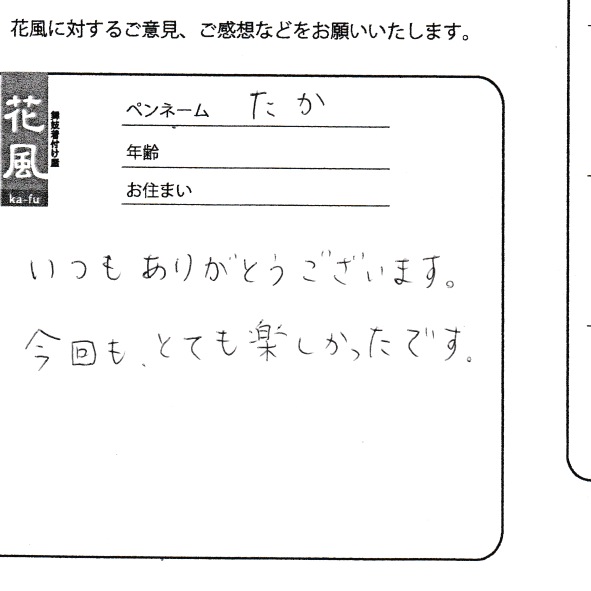 花風に対するご意見、ご感想などをお願いいたします。
花風
舞妓着付け屋
ka-fu
ペンネーム たか
年齢
お住まい
いつもありがとうございます。
今回も、とても楽しかったです。